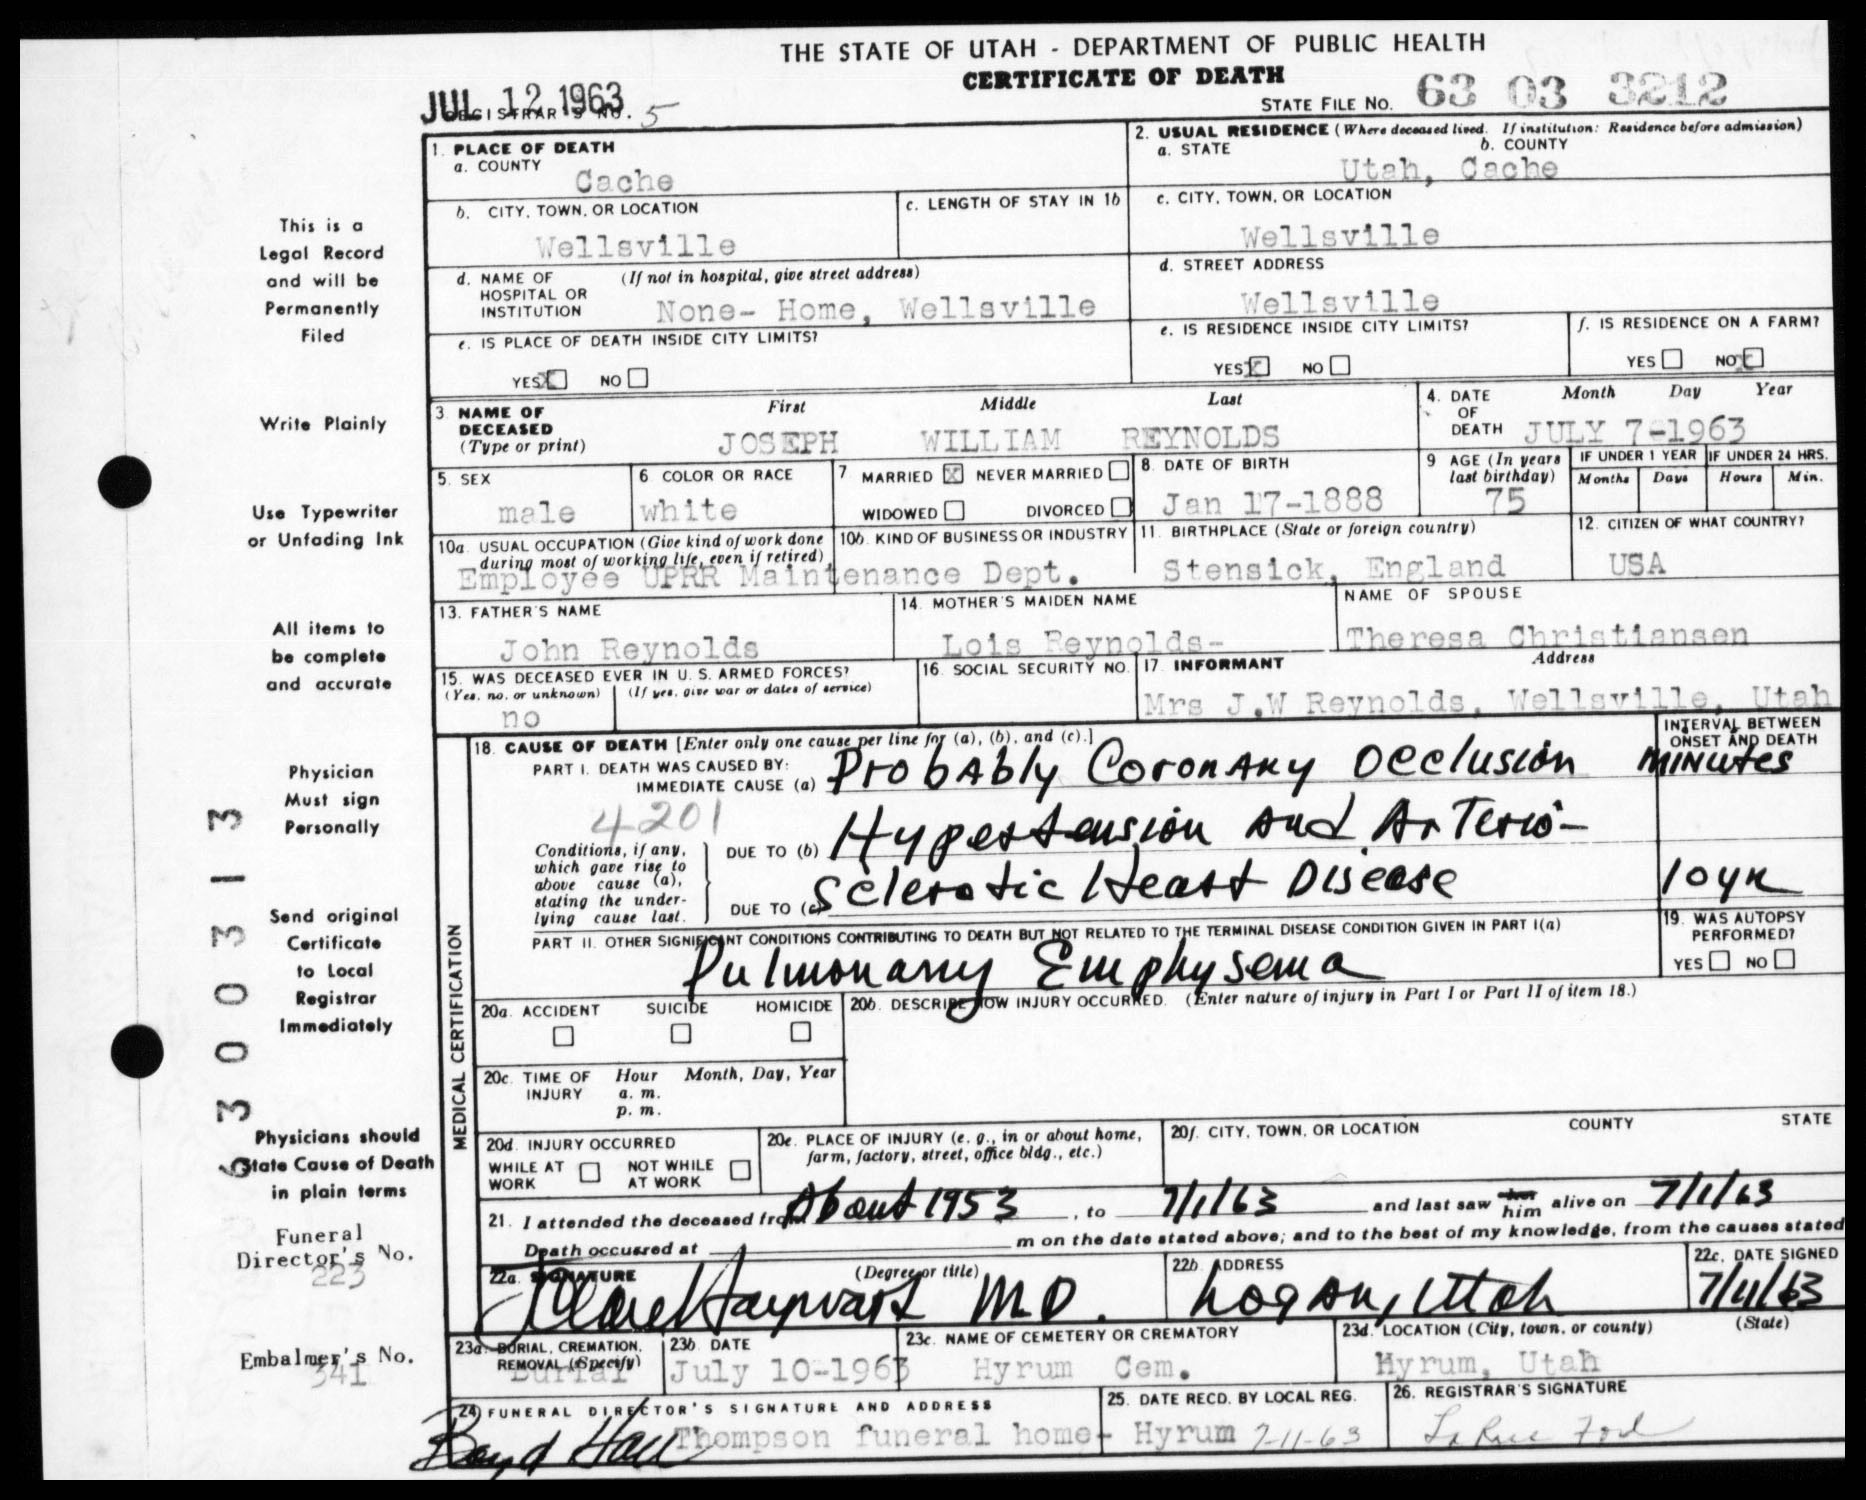 THE STATE OF UTAH - DEPARTMENT OF PUBLIC HEALTH
CERTIFICATE OF DEATH
JUL 12 1963
REGISTRAR'S NO. 5
STATE FILE NO. 63 03 3212
1. PLACE OF DEATH
a. COUNTY
Cache
2. USUAL RESIDENCE (Where deceased lived. If institution: Residence before admission)
a. STATE b. COUNTY
Utah, Cache
b. CITY, TOWN, OR LOCATION
Wellsville
c. LENGTH OF STAY IN 1b
c. CITY, TOWN, OR LOCATION
Wellsville
d. NAME OF HOSPITAL OR INSTITUTION (If not in hospital, give street address)
None- Home, Wellsville
d. STREET ADDRESS
Wellsville
e. IS PLACE OF DEATH INSIDE CITY LIMITS?
YES X NO
e. IS RESIDENCE INSIDE CITY LIMITS?
YES X NO
f. IS RESIDENCE ON A FARM?
YES NO X
3 NAME OF DECEASED (Type or print)
First Middle Last
JOSEPH WILLIAM REYNOLDS
4. DATE OF DEATH
Month Day Year
JULY 7-1963
5. SEX
male
6 COLOR OR RACE
white
7 MARRIED X NEVER MARRIED
WIDOWED DIVORCED
8. DATE OF BIRTH
Jan 17-1888
9 AGE (In years last birthday)
75
IF UNDER 1 YEAR
Months Days
IF UNDER 24 HRS.
Hours Min.
10a. USUAL OCCUPATION (Give kind of work done during most of working life, even if retired)
10b. KIND OF BUSINESS OR INDUSTRY
Employee UPRR Maintenance Dept.
11. BIRTHPLACE (State or foreign country)
Stensick, England
12. CITIZEN OF WHAT COUNTRY?
USA
13. FATHER'S NAME
John Reynolds
14. MOTHER'S MAIDEN NAME
Lois Reynolds-
NAME OF SPOUSE
Theresa Christiansen
15. WAS DECEASED EVER IN U. S. ARMED FORCES?
(Yes, no, or unknown) (If yes, give war or dates of service)
no
16. SOCIAL SECURITY NO.
17. INFORMANT Address
Mrs J.W Reynolds, Wellsville, Utah
MEDICAL CERTIFICATION
18. CAUSE OF DEATH [Enter only one cause per line for (a), (b), and (c).]
INTERVAL BETWEEN ONSET AND DEATH
PART I. DEATH WAS CAUSED BY:
IMMEDIATE CAUSE (a) Probably Coronary Occlusion minutes
4201
Conditions, if any, which gave rise to above cause (a), stating the underlying cause last.
DUE TO (b) Hypertension and Arterio-
DUE TO (c) Sclerotic Heart Disease 10 yr
PART II. OTHER SIGNIFICANT CONDITIONS CONTRIBUTING TO DEATH BUT NOT RELATED TO THE TERMINAL DISEASE CONDITION GIVEN IN PART I(a)
Pulmonary Emphysema
19. WAS AUTOPSY PERFORMED?
YES NO
20a. ACCIDENT SUICIDE HOMICIDE
20b. DESCRIBE HOW INJURY OCCURRED. (Enter nature of injury in Part I or Part II of item 18.)
20c. TIME OF INJURY Hour Month, Day, Year
a. m.
p. m.
20d. INJURY OCCURRED
WHILE AT WORK NOT WHILE AT WORK
20e. PLACE OF INJURY (e. g., in or about home, farm, factory, street, office bldg., etc.)
20f. CITY, TOWN, OR LOCATION COUNTY STATE
21. I attended the deceased from About 1953, to 7/1/63 and last saw her him alive on 7/1/63
Death occurred at m on the date stated above; and to the best of my knowledge, from the causes stated
22a. SIGNATURE (Degree or title)
Hayward M.D.
22b. ADDRESS
Logan, Utah
22c. DATE SIGNED
7/11/63
23a. BURIAL, CREMATION, REMOVAL (Specify)
Burial
23b. DATE
July 10-1963
23c. NAME OF CEMETERY OR CREMATORY
Hyrum Cem.
23d. LOCATION (City, town, or county) (State)
Hyrum, Utah
24 FUNERAL DIRECTOR'S SIGNATURE AND ADDRESS
Boyd Hall Thompson funeral home- Hyrum
25. DATE RECD. BY LOCAL REG.
7-11-63
26. REGISTRAR'S SIGNATURE
LaRue Ford
This is a
Legal Record
and will be
Permanently
Filed
Write Plainly
Use Typewriter
or Unfading Ink
All items to
be complete
and accurate
Physician
Must sign
Personally
Send original
Certificate
to Local
Registrar
Immediately
Physicians should
State Cause of Death
in plain terms
Funeral
Director's No.
223
Embalmer's No.
341
63003 1 3